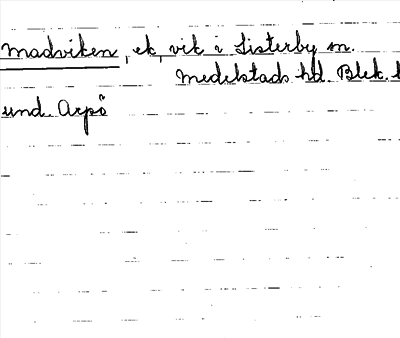 Madviken, ek, vik i Listerby sn.
Medelstads hd. Blek. l
und. Arpö